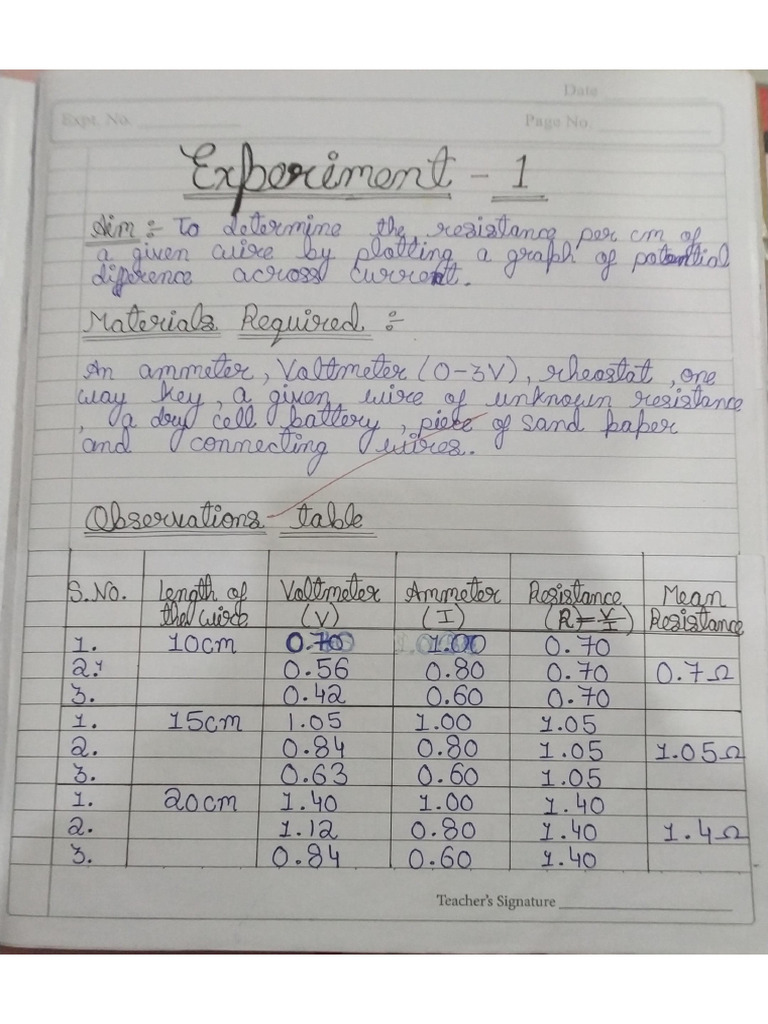 Date
Expt. No.
Page No.
Experiment - 1
Aim :- To determine the resistance per cm of
a given wire by plotting a graph of potential
difference across current.
Materials Required :-
An ammeter, Voltmeter (0-3V), rheostat, one
way key, a given wire of unknown resistance
, a dry cell battery, piece of sand paper
and connecting wires.
Observations table
S.No. Length of the wire Voltmeter (V) Ammeter (I) Resistance (R = V/I) Mean Resistance
1. 10cm 0.70 1.00 0.70
2. 0.56 0.80 0.70 0.7Ω
3. 0.42 0.60 0.70
1. 15cm 1.05 1.00 1.05
2. 0.84 0.80 1.05 1.05Ω
3. 0.63 0.60 1.05
1. 20cm 1.40 1.00 1.40
2. 1.12 0.80 1.40 1.4Ω
3. 0.84 0.60 1.40
Teacher's Signature